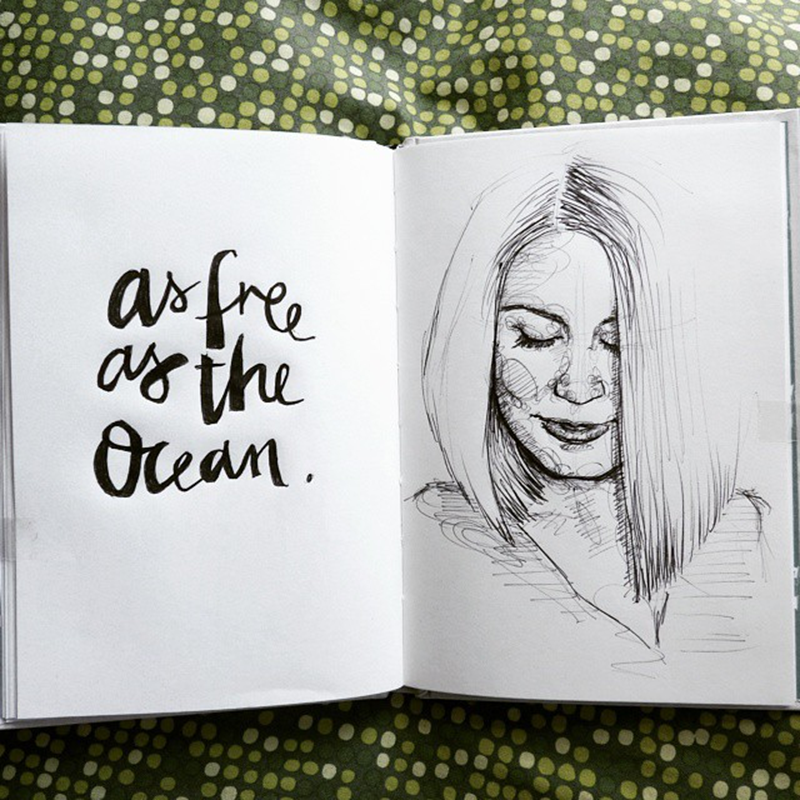 as free
as the
Ocean.